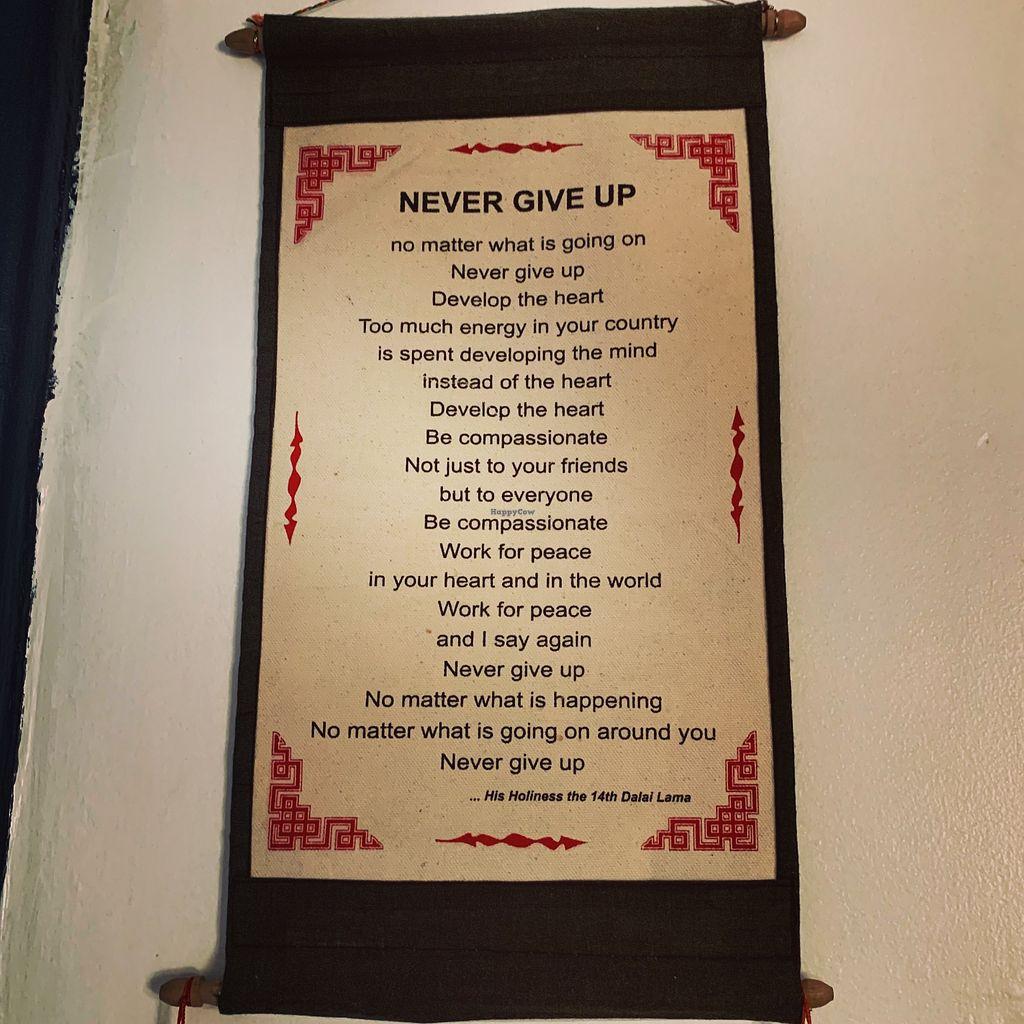 NEVER GIVE UP
no matter what is going on
Never give up
Develop the heart
Too much energy in your country
is spent developing the mind
instead of the heart
Develop the heart
Be compassionate
Not just to your friends
but to everyone
HappyCow
Be compassionate
Work for peace
in your heart and in the world
Work for peace
and I say again
Never give up
No matter what is happening
No matter what is going on around you
Never give up
... His Holiness the 14th Dalai Lama